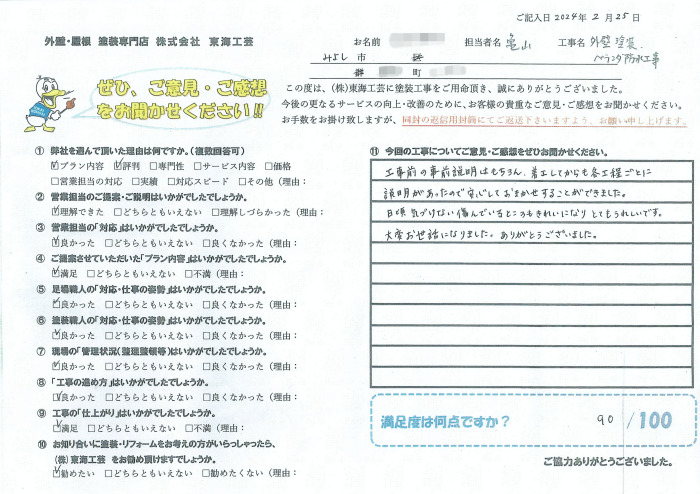 ご記入日 2024年 2月 25日
外壁・屋根 塗装専門店 株式会社 東海工芸
お名前 担当者名 亀山 工事名 外壁塗装、
ベランダ防水工事
みよし市
郡 町
ぜひ、ご意見・ご感想
をお聞かせください!!
この度は、(株)東海工芸に塗装工事をご用命頂き、誠にありがとうございました。
今後の更なるサービスの向上・改善のために、お客様の貴重なご意見・ご感想をお聞かせください。
お手数をお掛け致しますが、同封の返信用封筒にてご返送下さいますよう、お願い申し上げます。
① 弊社を選んで頂いた理由は何ですか。(複数回答可)
☑プラン内容 ☑評判 □専門性 □サービス内容 □価格
□営業担当の対応 □実績 □対応スピード □その他（理由：
② 営業担当のご提案・ご説明はいかがでしたでしょうか。
☑理解できた □どちらともいえない □理解しづらかった（理由：
③ 営業担当の「対応」はいかがでしたでしょうか。
☑良かった □どちらともいえない □良くなかった（理由：
④ ご提案させていただいた「プラン内容」はいかがでしたでしょうか。
☑満足 □どちらともいえない □不満（理由：
⑤ 足場職人の「対応・仕事の姿勢」はいかがでしたでしょうか。
☑良かった □どちらともいえない □良くなかった（理由：
⑥ 塗装職人の「対応・仕事の姿勢」はいかがでしたでしょうか。
☑良かった □どちらともいえない □良くなかった（理由：
⑦ 現場の「管理状況(整理整頓等)」はいかがでしたでしょうか。
☑良かった □どちらともいえない □良くなかった（理由：
⑧ 「工事の進め方」はいかがでしたでしょうか。
☑良かった □どちらともいえない □良くなかった（理由：
⑨ 工事の「仕上がり」はいかがでしたでしょうか。
☑満足 □どちらともいえない □不満（理由：
⑩ お知り合いに塗装・リフォームをお考えの方がいらっしゃったら、
(株)東海工芸 をお勧め頂けますでしょうか。
☑勧めたい □どちらともいえない □勧めたくない（理由：
⑪ 今回の工事についてご意見・ご感想をぜひお聞かせください。
工事前の事前説明はもちろん、着工してからも各工程ごとに
説明があったので安心しておまかせすることができました。
日頃気づけない傷んでいるところもきれいになりとてもうれしいです。
大変お世話になりました。ありがとうございました。
満足度は何点ですか？ 90 /100
ご協力ありがとうございました。